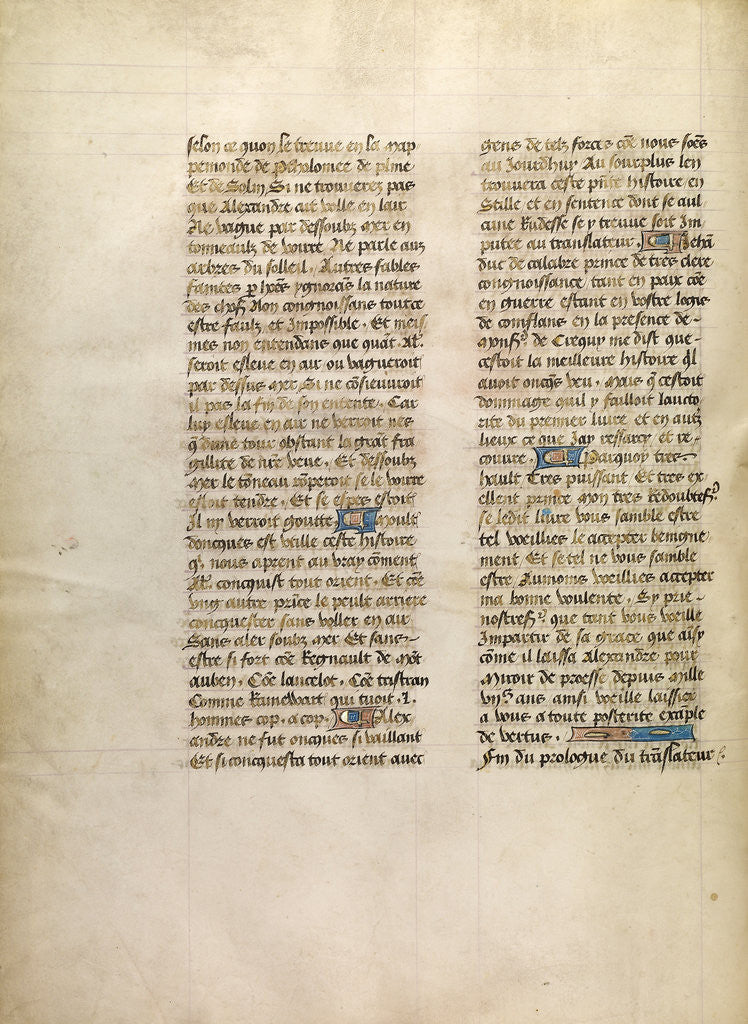 selon ce quon le treuve en la map
pemonde de Ptholomee de pline
Et de Solin Si ne trouverez pas
que Alexandre ait volle en lair
Ne vague par dessoubz mer en
tonneaulx de voirre Ne parle aux
arbres du solleil. Autres fables
faintes p hões ygnorãs la nature
des choses Non congnoissans tout ce
estre faulx et Impossible. Et meis
mes non entendans que quãt Al'.
seroit esleve en air ou vagueroit
par dessus mer Si ne cõsievvroit
il pas la fin de son entente. Car
luy esleve en air ne verroit nes
q̃ dune tour obstant la grãt fra
gillite de nr̃e veue. Et dessoubz
mer le tõneau rõperoit se le voirre
estoit tendre. Et se espes estoit
Il ny verroit goutte. Moult
doncques est utille ceste histoire
q' nous aprent au vray cõment
Al'. concquist tout orient. Et cõe
ung autre prĩce le peult arriere
concquester sans voller en air
Sans aler soubz mer Et sans
estre si fort cõe Regnault de mõt
auben. Cõe lancelot. Cõe tristran
Comme Raineward qui tuoit .L.
hommes cop. a cop. Alex
andre ne fut oncques si vaillant
Et si concquesta tout orient avec
gens de telz forces cõe nous soẽs
au Jourdhuy Au sourplus len
trouvera ceste pñte histoire en
Stille et en sentence dont se aul
cune Rudesse se y treuve soit Im
putee au translateur. Jehã
duc de calabre prince de tres clere
congnoissance tant en paix cõe
en guerre estant en vostre logis
de conflans en la presence de
Monsr. de Crequy me dist que
cestoit la meilleure histoire q̃l
avoit oncq̃s veu. Mais q̃ cestoit
dommage quil y failloit laucto
rite du premier livre et en aut̃z
lieux ce que Jay ressarcy et re
couvre. Parquoy tres
hault Tres puissant Et tres ex
cellent prince Mon tres Redoubte sr.
se ledit livre vous samble estre
tel veuillies le accepter benigne
ment. Et se tel ne vous samble
estre Aumoins veillies accepter
ma bonne voulente. Sy prie
nostre sr. que tant vous vueille
Impartir de sa grace que aĩsy
cõme il laissa Alexandre pour
Miroir de proesse depuis mille
viiᶜ ans ainsi veille laissier
a vous a toute posterite exẽple
de vertus.
Fin du prologue du trãslateur